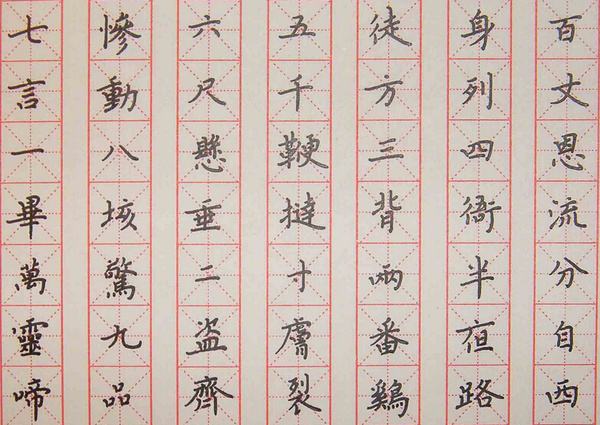 百丈恩流分自西
身列四衙半亱路
徒方三背兩番鷄
五千鞭撻寸膚裂
六尺懸垂二盜齊
慘動八垓驚九品
七言一畢萬靈啼